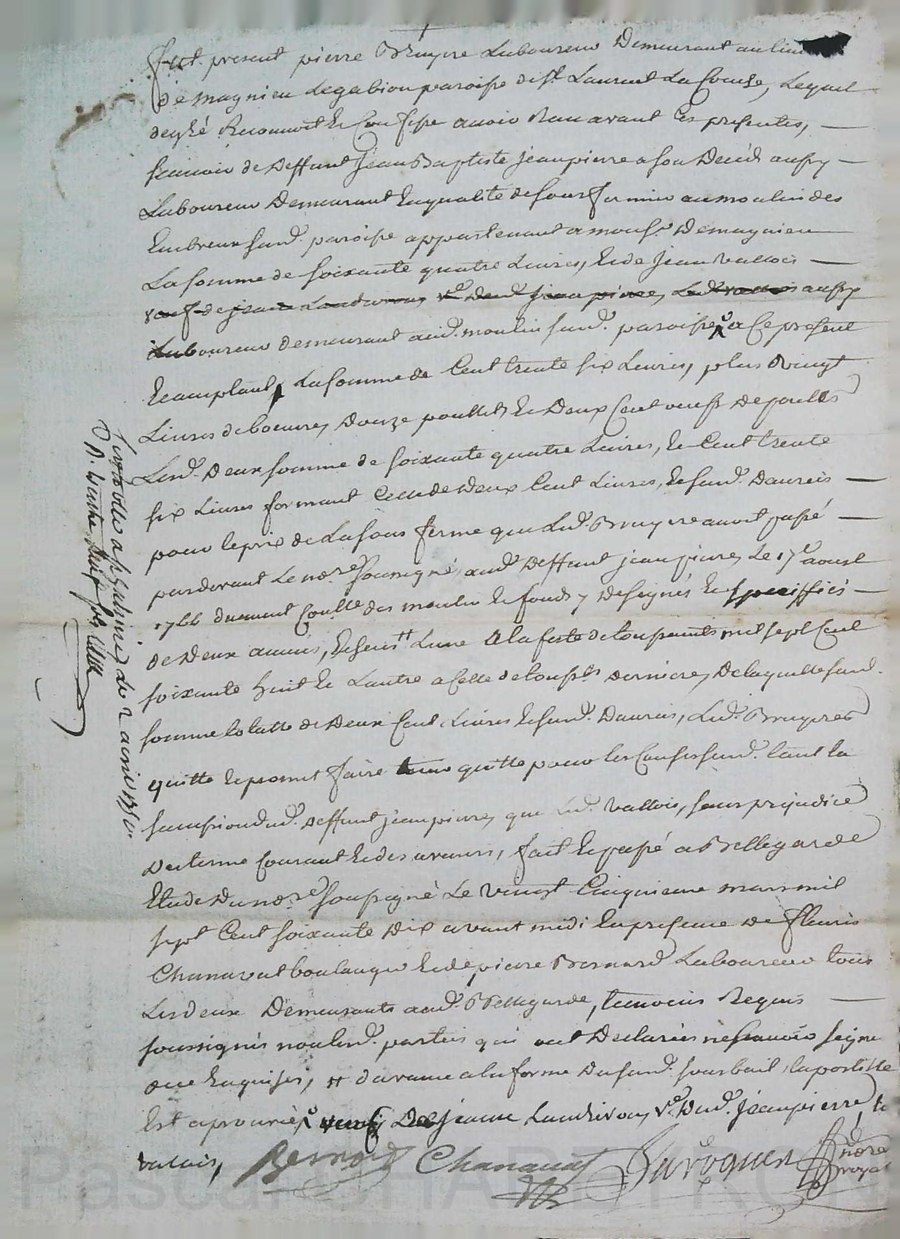 fut present pierre Bruyere Laboureur Demeurant au lieu
de magnieu legabion paroisse de st. Laurent La Conche, Lequel
de gré Reconnoit et Confesse avoir Reçu avant ces presentes,
sçavoir de Deffunt Jean Baptiste jeanpierre a son Decéd aussy
Laboureur Demeurant En qualité de sous fermier au moulin des
susd. paroisse appartenant a mons.r Demagnieu
La somme de soixante quatre Livres, Et de Jean Vallois
veuf de jeane Landivron ve. Dud. jeanpierre, aussy
Laboureur demeurant aud. moulin susd. paroisse a Ce present
Et acceptant, La somme de Cent trente six Livres, plus vingt
Livres de beurre, Douze poullets Et Deux Cent oeufs de poulles
Lesd. Deux somme de soixante quatre Livres, Et Cent trente
six Livres formant Celle de Deux Cent Livres, Et susd. Danrés
pour le prix de La sous ferme que Led. Bruyere avoit passé
pardevant Le nore. soussigné aud. Deffunt jeanpierre, Le 17e aoust
1766 duement Conllé. des moulin Et fonds y designés Et speciffiés
de Deux années, Echeues L'une a la feste de toussaints mil sept Cent
soixante huit Et L'autre a Celle de touss.ts Derniere, De laquelle susd.
somme totalle de Deux Cent Livres Et susd. Danrés, Led. Bruyere
quitte Et promet faire tenir quitte pour Les Causes susd. tant la
sucession dud. Deffunt jeanpierre, que Led. Vallois, sans prejudice
Du terme Courant Et des avenirs, fait Et passé a Bellegarde
Etude Du nore. soussigné Le vingt Cinquieme mars mil
sept Cent soixante Dix avant midi En presence de fleuris
Chanavat boulanger Et de pierre Bernard Laboureur tous
Les deux Demeurants aud. Bellegarde, temoins Requis
soussignés non Lesd. parties qui ont Declarées ne sçavoir signer
de ce Enquises, a la forme Du susd. sousbail, l'apostille
Est aprouvée, De jeane Landivron, ve. Dud. jeanpierre,
valois,
Bernard Chanavat
nore
royal
Controllé a st Galmier le 2 avril 1770
R.
Pascal CHAMBEYRON